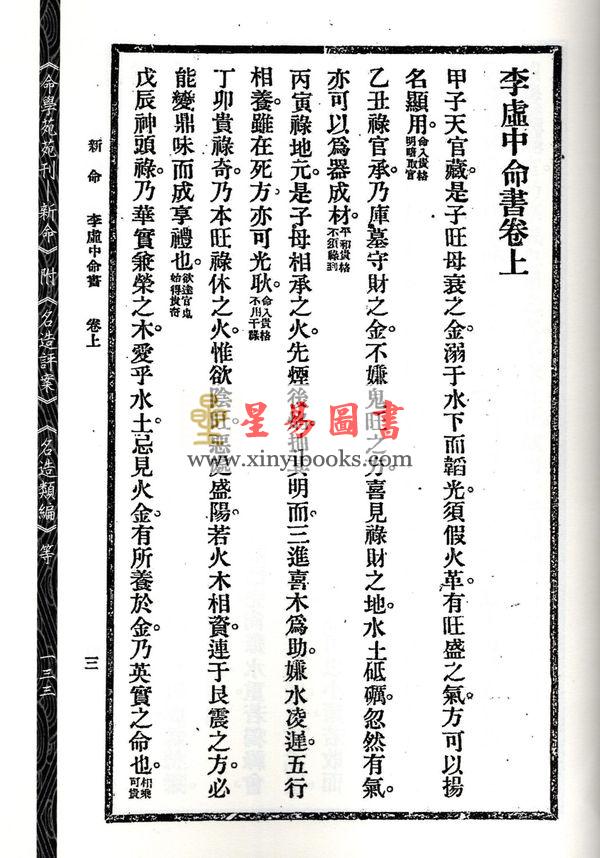 李虛中命書卷上
甲子天官藏是子旺母衰之金溺于水下而韜光須假火革。有旺盛之氣。方可以揚
名顯用。命入貴格明暗取官
乙丑祿官承。乃庫墓守財之金不嫌鬼旺之方。喜見祿財之地。水土砥礪。忽然有氣。
亦可以為器成材。平和貴格不須祿到
丙寅祿地元。是子母相承之火。先煙後明而三進喜木為助。嫌水凌遲。五行
相養雖在死方。亦可光耿。命入貴格不用干祿
丁卯貴祿奇。乃本旺祿休之火。惟欲陰旺。惡處盛陽。若火木相資。連于艮震之方。必
能變鼎味而成享禮也。欲達官鬼始得拔奇
戊辰神頭祿。乃華實兼榮之木。愛乎水土。忌見火金。有所養於金。乃英實之命也。相乘可貴
新命 李虛中命書 卷上 三
《命學苑苑刊—新命》附《名造評案》《名造類編》等 一三三
星易圖書
www.xinyibooks.com